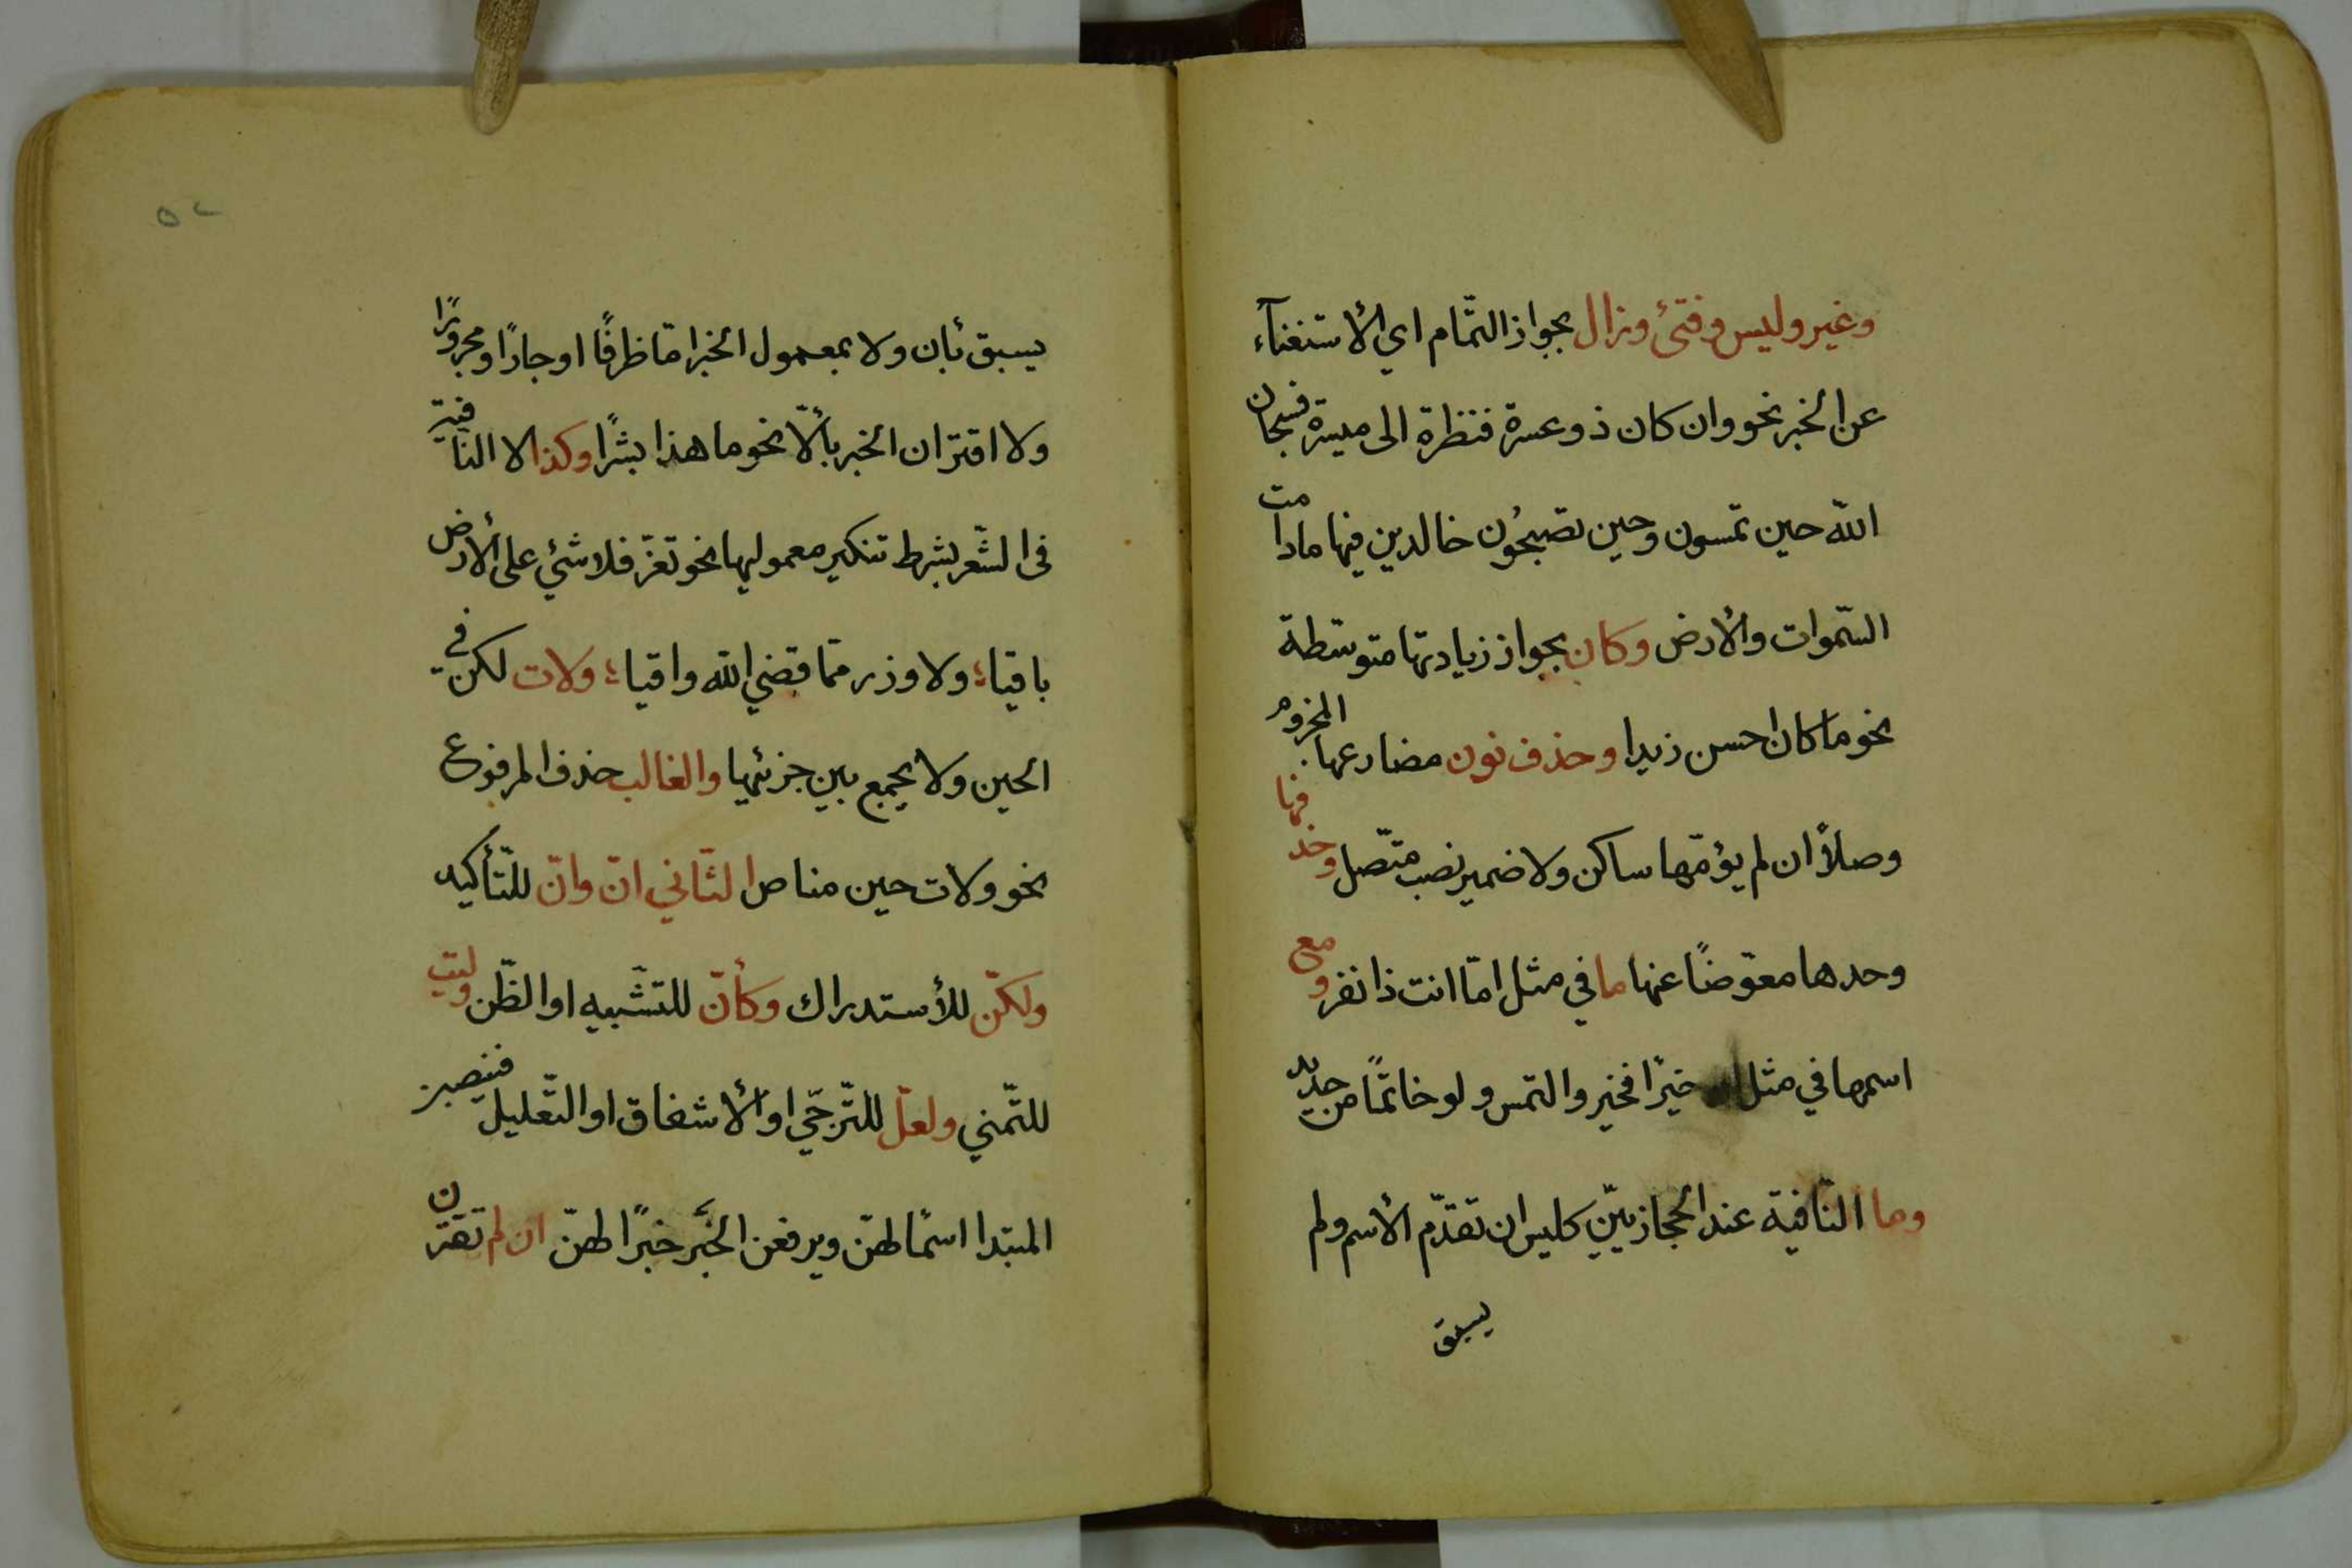 وغير وليس وفتئ وزال بجواز التّمام اي الأستغنآء
عن الخبر نحو وان كان ذو عسرة فنظرة الى ميسرة فسبحان
الله حين تمسون وحين تصبحُون خالدين فيها مادامت
السّموات والأرض وكان بجواز زيادتها متوسّطة
نحو ما كان احسن زيدا وحذف نون مضارعها المجزوم
وصلاً ان لم يؤمّها ساكن ولا ضمير نصب متّصل وحذفها
وحدها معوّضًا عنها ما في مثل امّا انت ذا نفر ومع
اسمها في مثل ان خيرًا فخير والتمس ولو خاتمًا من حديد
وما النّافية عند الحجازيّين كليس ان تقدّم الأسم ولم
يسبق
٥٢
يسبق بأن ولا بمعمول الخبر امّا ظرفًا او جارًا ومجرورًا
ولا اقتران الخبر بألّا نحو ما هذا بشرًا وكذا لا النافية
فى الشّعر بشرط تنكير معموليها نحو تعزّ فلا شئي على الأرض
باقيا؛ ولا وزر ممّا قضي الله واقيا؛ ولات لكن في
الحين ولا يجمع بين جزئيها والغالب حذف المرفوع
نحو ولات حين مناص الثّاني انّ وانّ للتّأكيد
ولكنّ للأستدراك وكأنّ للتشّبيه او الظّن وليت
للتّمني ولعلّ للتّرجّي او الأشفاق او التّعليل فينصبن
المبتدا اسمًا لهنّ ويرفعن الخبر خبرًا لهنّ ان لم تقترن